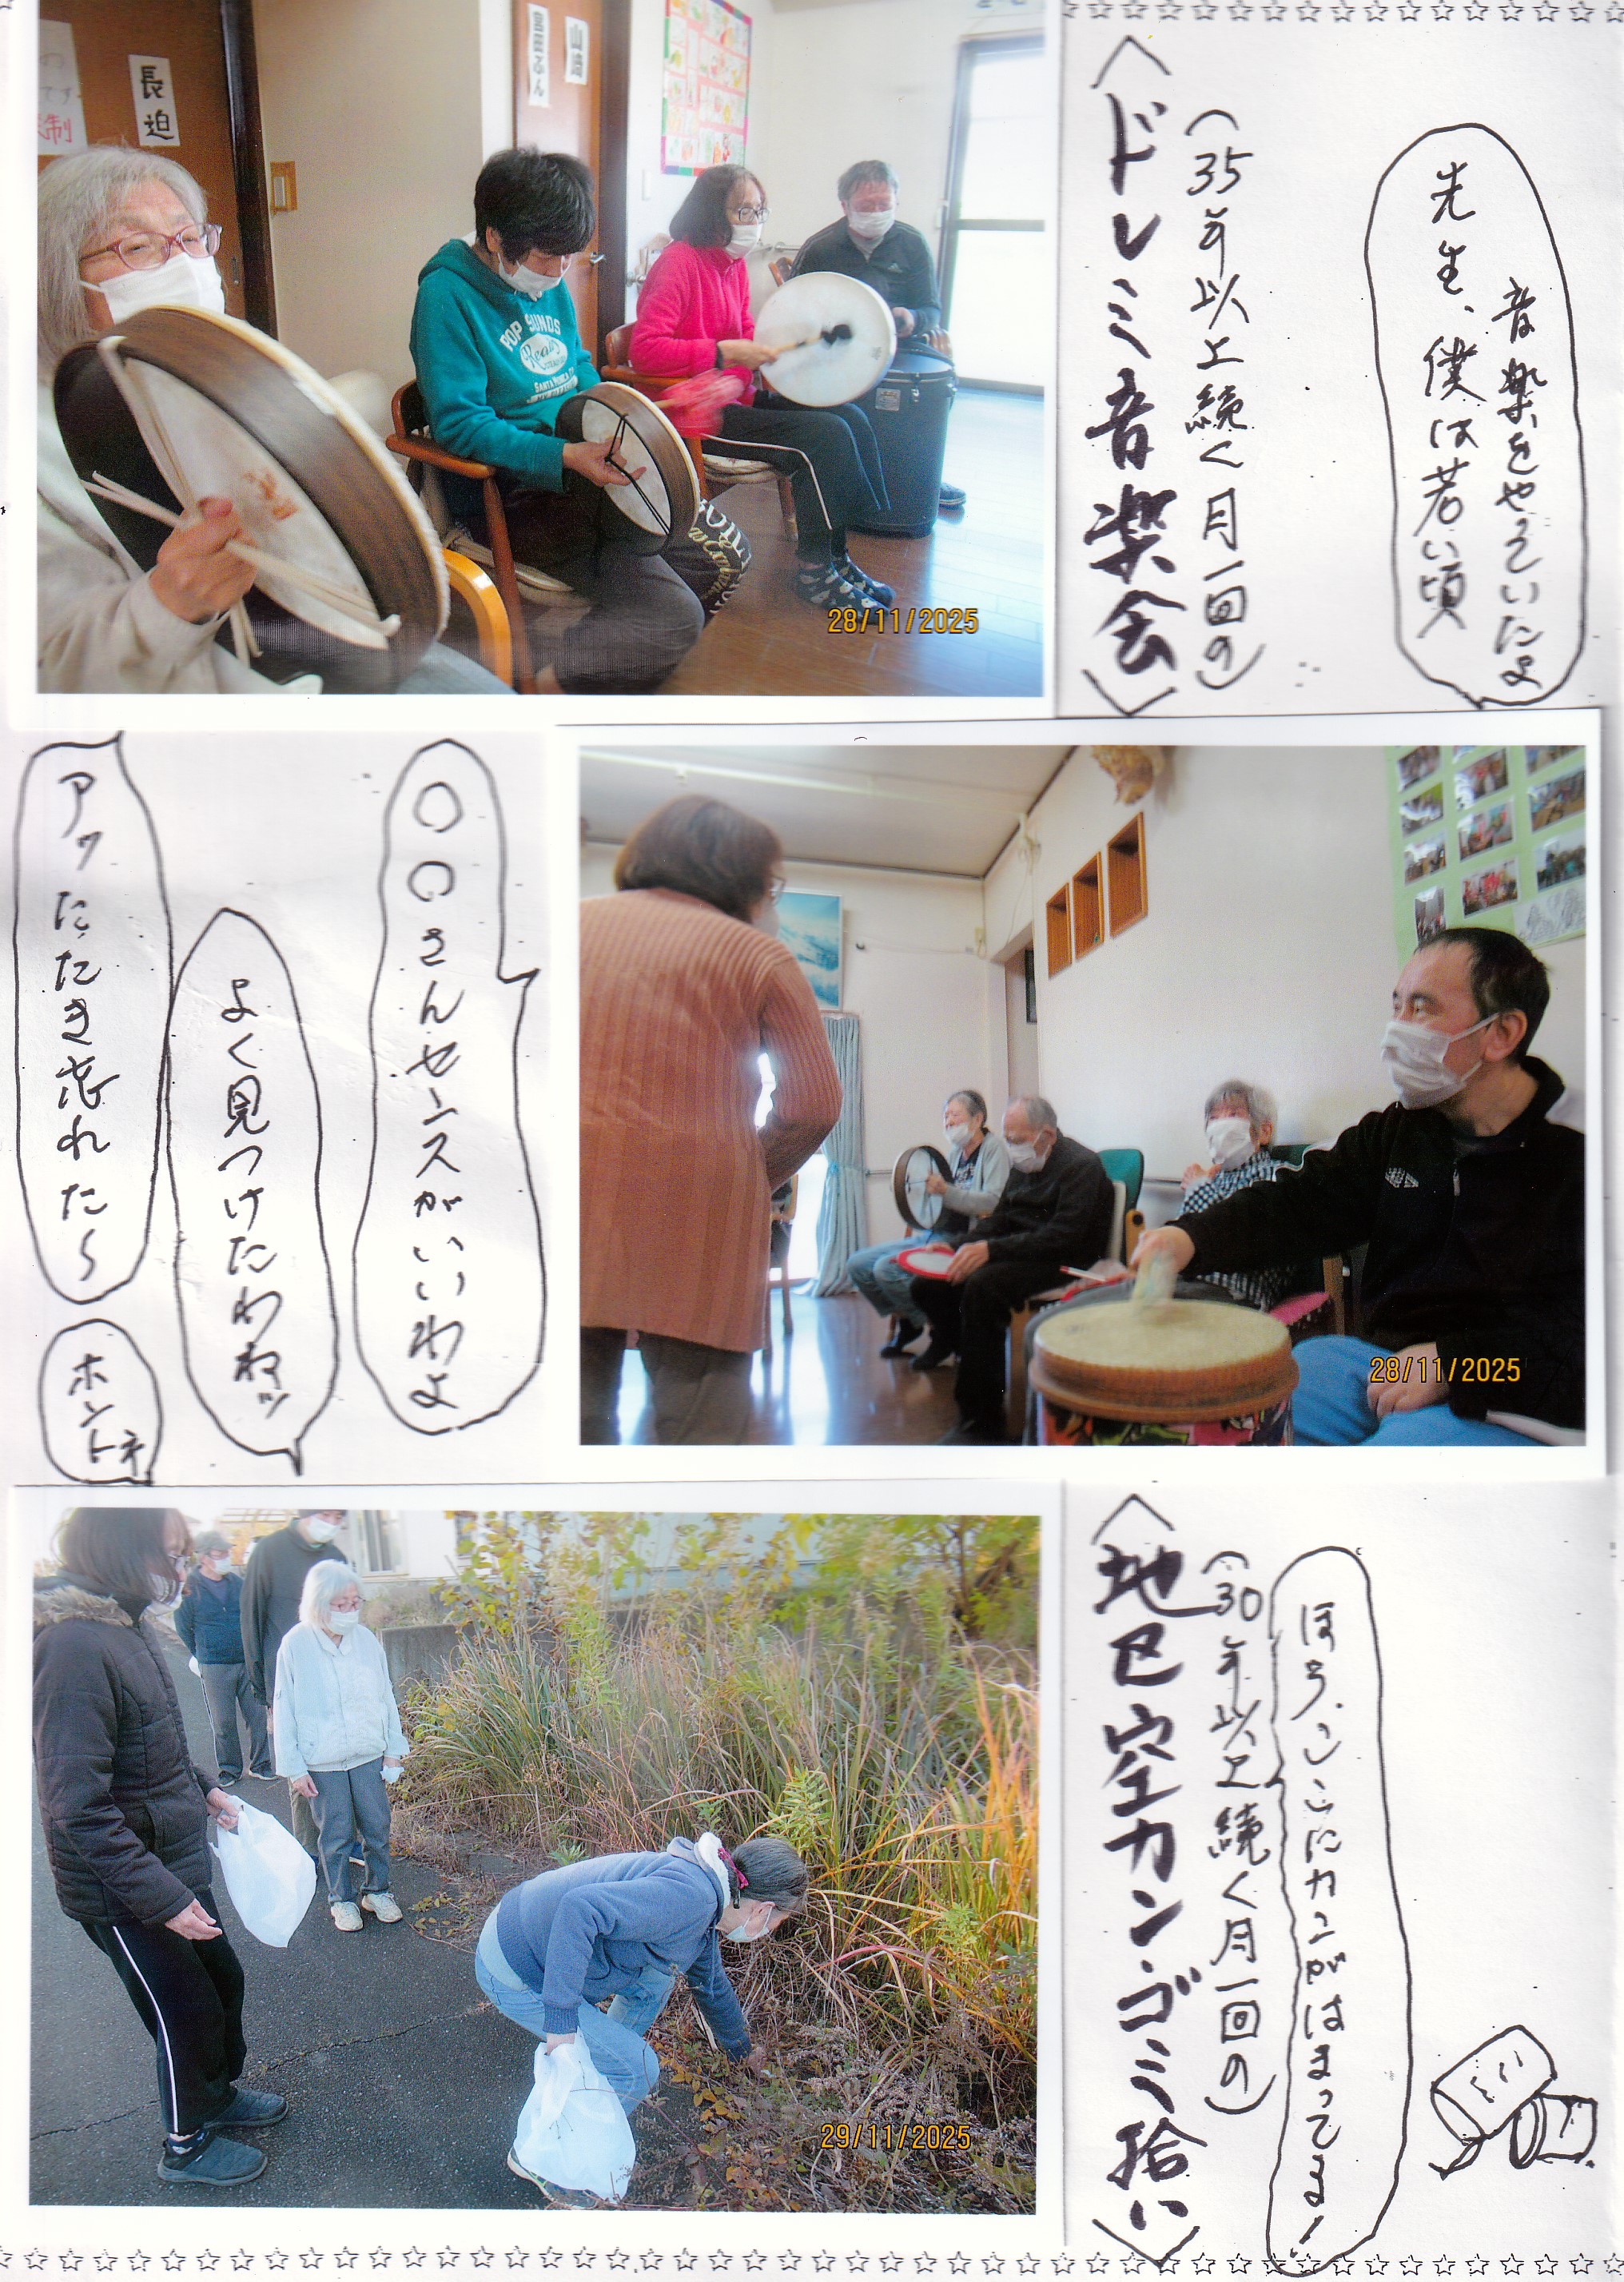 〈ドレミ音楽会〉
(35年以上続く月一回の)
先生、僕は若い頃
音楽をやっていたよ
長迫
制
山崎
POP SOUNDS
Really
SANTA MONICA
28/11/2025
〇〇さんセンスがいいわよ
よく見つけたわねッ
アッたたき忘れた〜
ホントネ
28/11/2025
〈地区空カン・ゴミ拾い〉
(30年以上続く月一回の)
ほら、ここにカンがはまってるよ!
29/11/2025